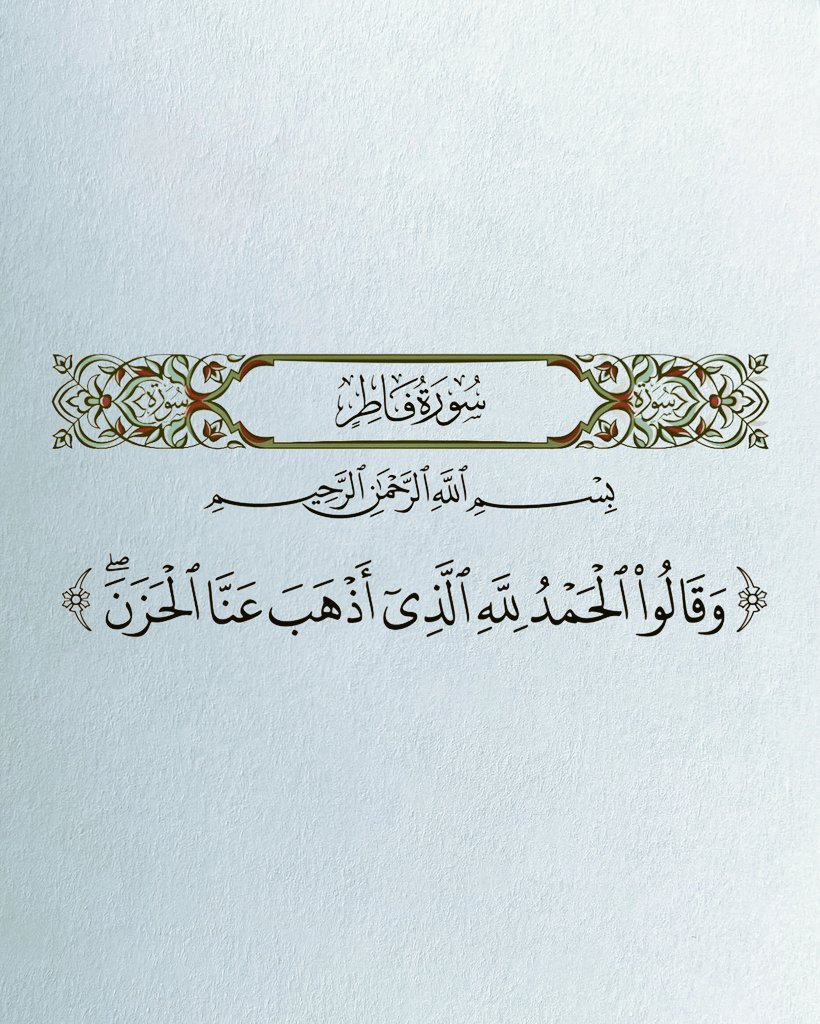 سُورَةُ فَاطِرٍ
سورة
سورة
بِسْمِ ٱللَّهِ ٱلرَّحْمَٰنِ ٱلرَّحِيمِ
وَقَالُوا۟ ٱلْحَمْدُ لِلَّهِ ٱلَّذِىٓ أَذْهَبَ عَنَّا ٱلْحَزَنَ ۖ